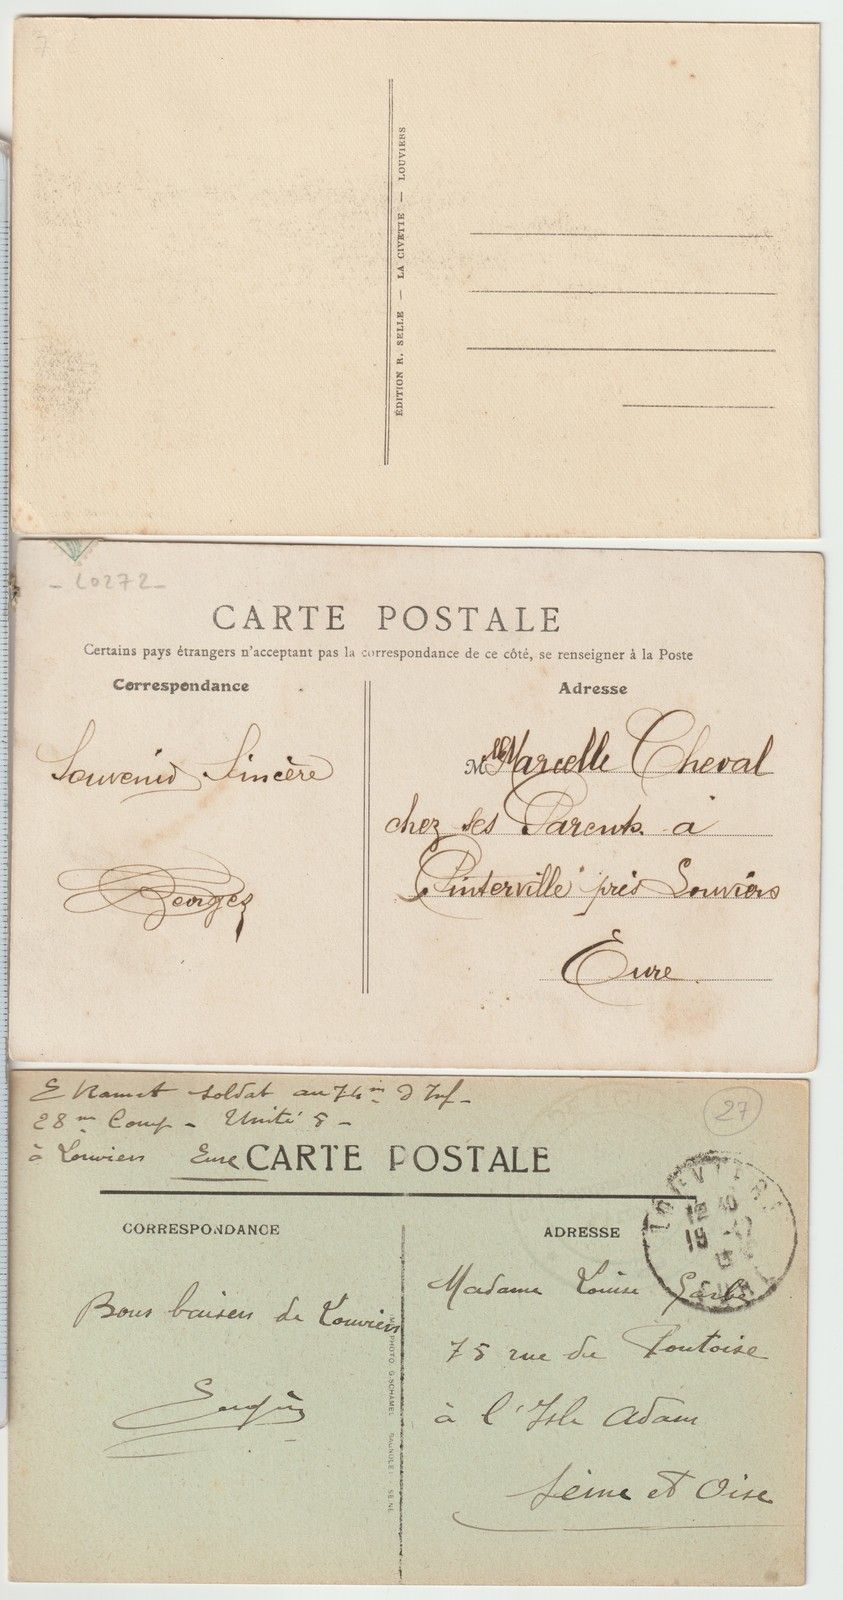 7
ÉDITION R. SELLE — LA CIVETTE — LOUVIERS
- L0272 -
CARTE POSTALE
Certains pays étrangers n'acceptant pas la correspondance de ce côté, se renseigner à la Poste
Correspondance
Adresse
Souvenir Sincère
Georges
Mlle Marcelle Cheval
chez ses Parents à
Pinterville près Louviers
Eure
E Hamet soldat au 74 m d'Inf-
28 me Comp - Unité 5 -
à Louviers Eure
27
CARTE POSTALE
LOUVIERS
12
CORRESPONDANCE
ADRESSE
Bons baisers de Louviers
Madame Louise
75 rue de Pontoise
à l'Isle Adam
Seine et Oise
PHOTO. G. SCHAMEL BAGNOLET - SEINE